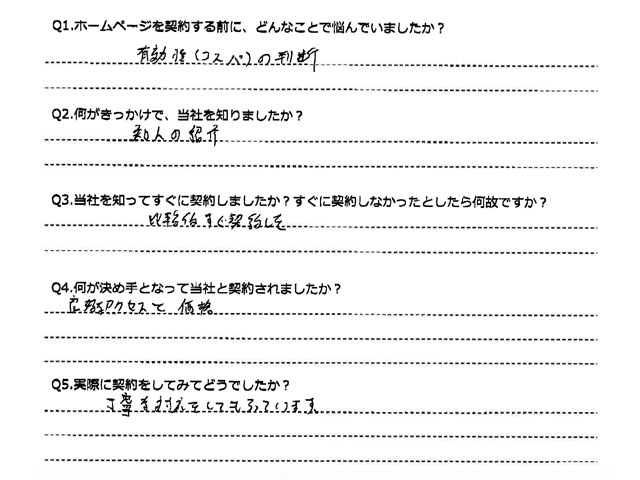 Q1.ホームページを契約する前に、どんなことで悩んでいましたか？
有効性(コスパ)の判断
Q2.何がきっかけで、当社を知りましたか？
知人の紹介
Q3.当社を知ってすぐに契約しましたか？すぐに契約しなかったとしたら何故ですか？
比較的すぐ契約した
Q4.何が決め手となって当社と契約されましたか？
アクセスと価格
Q5.実際に契約をしてみてどうでしたか？
丁寧な対応をしてもらっています